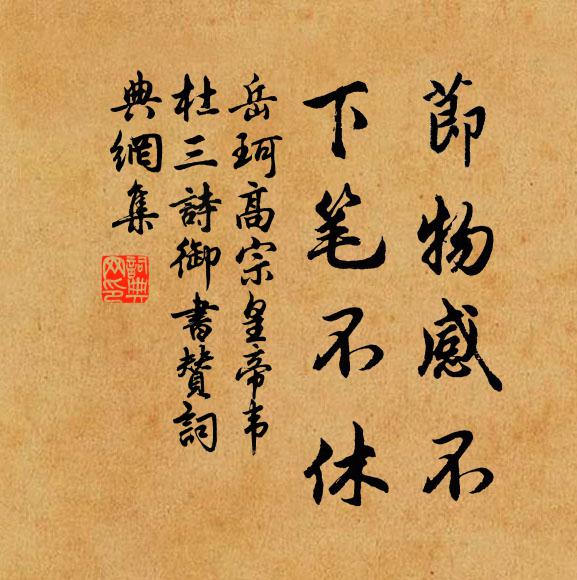 節物感不
下笔不休
岳珂高宗皇帝韦
杜三詩御書贊詞
典網集
詞典網印